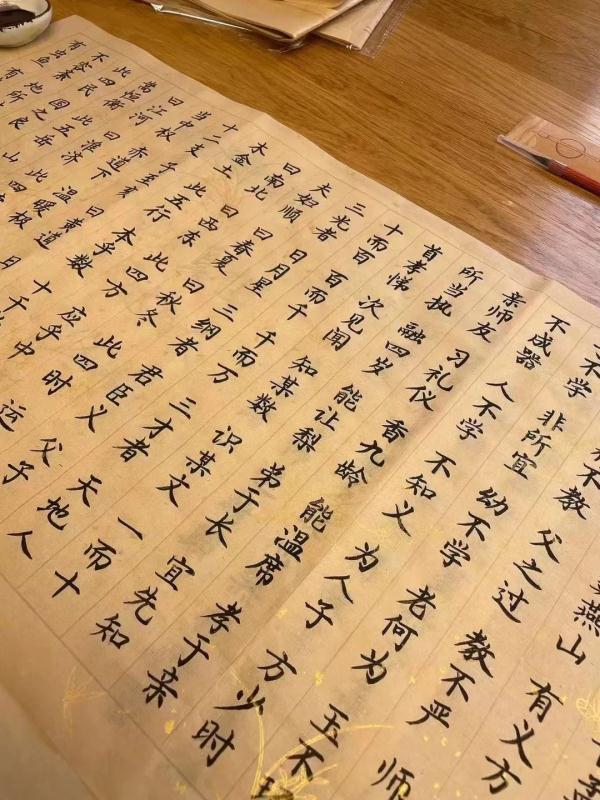 燕山 有义方
不教 父之过 教不严 师
不学 非所宜 幼不学 老何为 玉不
不成器 人不学 不知义 为人子 方少时
亲师友 习礼仪 香九龄 能温席 孝于亲
所当执 融四岁 能让梨 弟于长 宜先知
首孝悌 次见闻 知某数 识某文 一而十
十而百 百而千 千而万 三才者 天地人
三光者 日月星 三纲者 君臣义 父子
夫如顺 曰春夏 曰秋冬 此四时 运
曰南北 曰西东 此四方 应乎中
木金土 此五行 本乎数 十干
十二支 子至亥 曰黄道 日
当中权 赤道下 温暖极
曰江河 曰淮济 此四
嵩恒衡 此五岳 山
此四民 国之良
不容紊 地所
有虫鱼 有